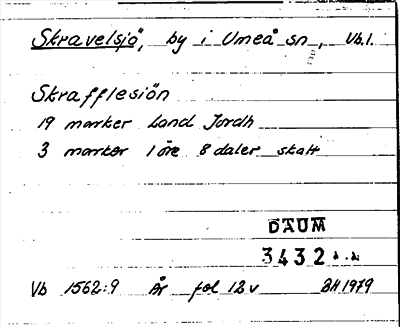 Skravelsjö, by i Umeå sn, Vb.l.
Skrafflesiön
19 marker Land Jordh
3 marker 1 öre 8 daler skatt
DAUM
3432
Vb 1562:9 År fol 12v BH 1979